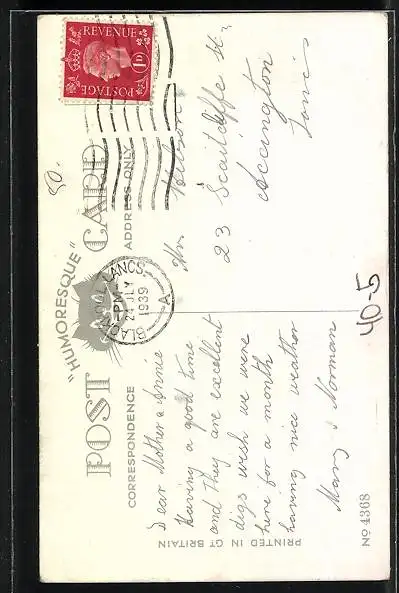 "HUMORESQUE"
POST CARD
CORRESPONDENCE
ADDRESS ONLY
REVENUE
1D
POSTAGE
BLACKPOOL, LANCS.
-PM-
24 JLY
1939
A
80.
Dear Mother & Annie
Having a good time
and they are excellent
digs wish we were
here for a month
having nice weather
Mary & Norman
23 Scaitcliffe St.
Accrington
Lancs
40-5
PRINTED IN GT BRITAIN
No 4368